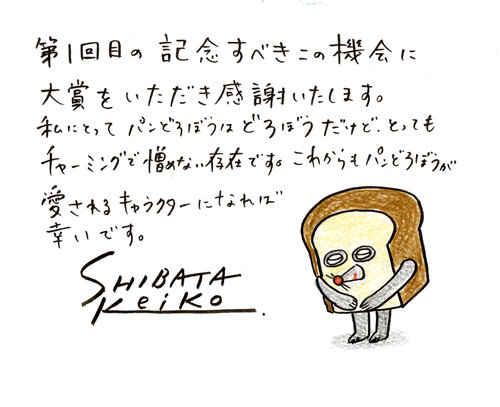 第1回目の記念すべきこの機会に
大賞をいただき感謝いたします。
私にとってパンどろぼうはどろぼうだけど、とっても
チャーミングで憎めない存在です。これからもパンどろぼうが
愛されるキャラクターになれば
幸いです。
SHIBATA
KeiKo.